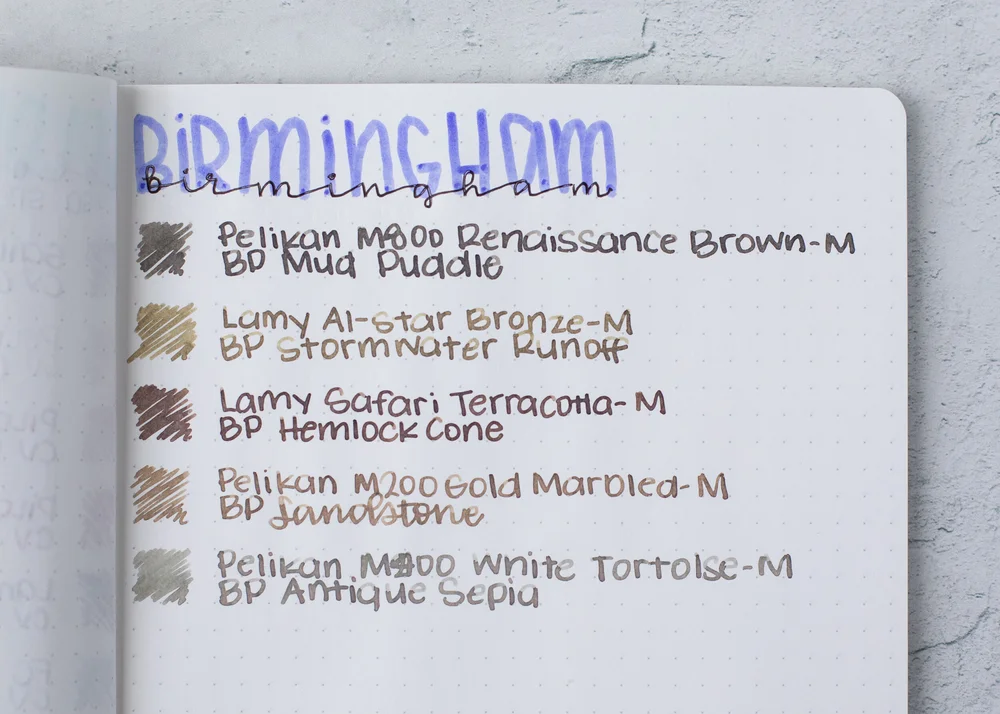 BiRminGHam
birmingham
Pelikan M800 Renaissance Brown-M
BP Mud Puddle
Lamy Al-Star Bronze-M
BP Stormwater Runoff
Lamy Safari Terracotta-M
BP Hemlock Cone
Pelikan M200 Gold Marbled-M
BP Sandstone
Pelikan White Tortoise-M
BP Antique Sepia